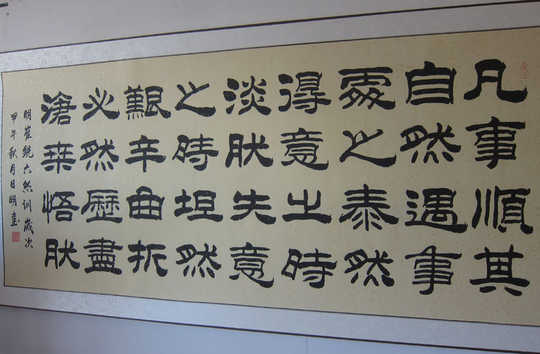 凡事順其
自然遇事
處之泰然
得意之時
淡然失意
之時坦然
艱辛曲折
必然歷盡
滄桑悟然
明崔銑六然訓歲次
甲午秋月日明書